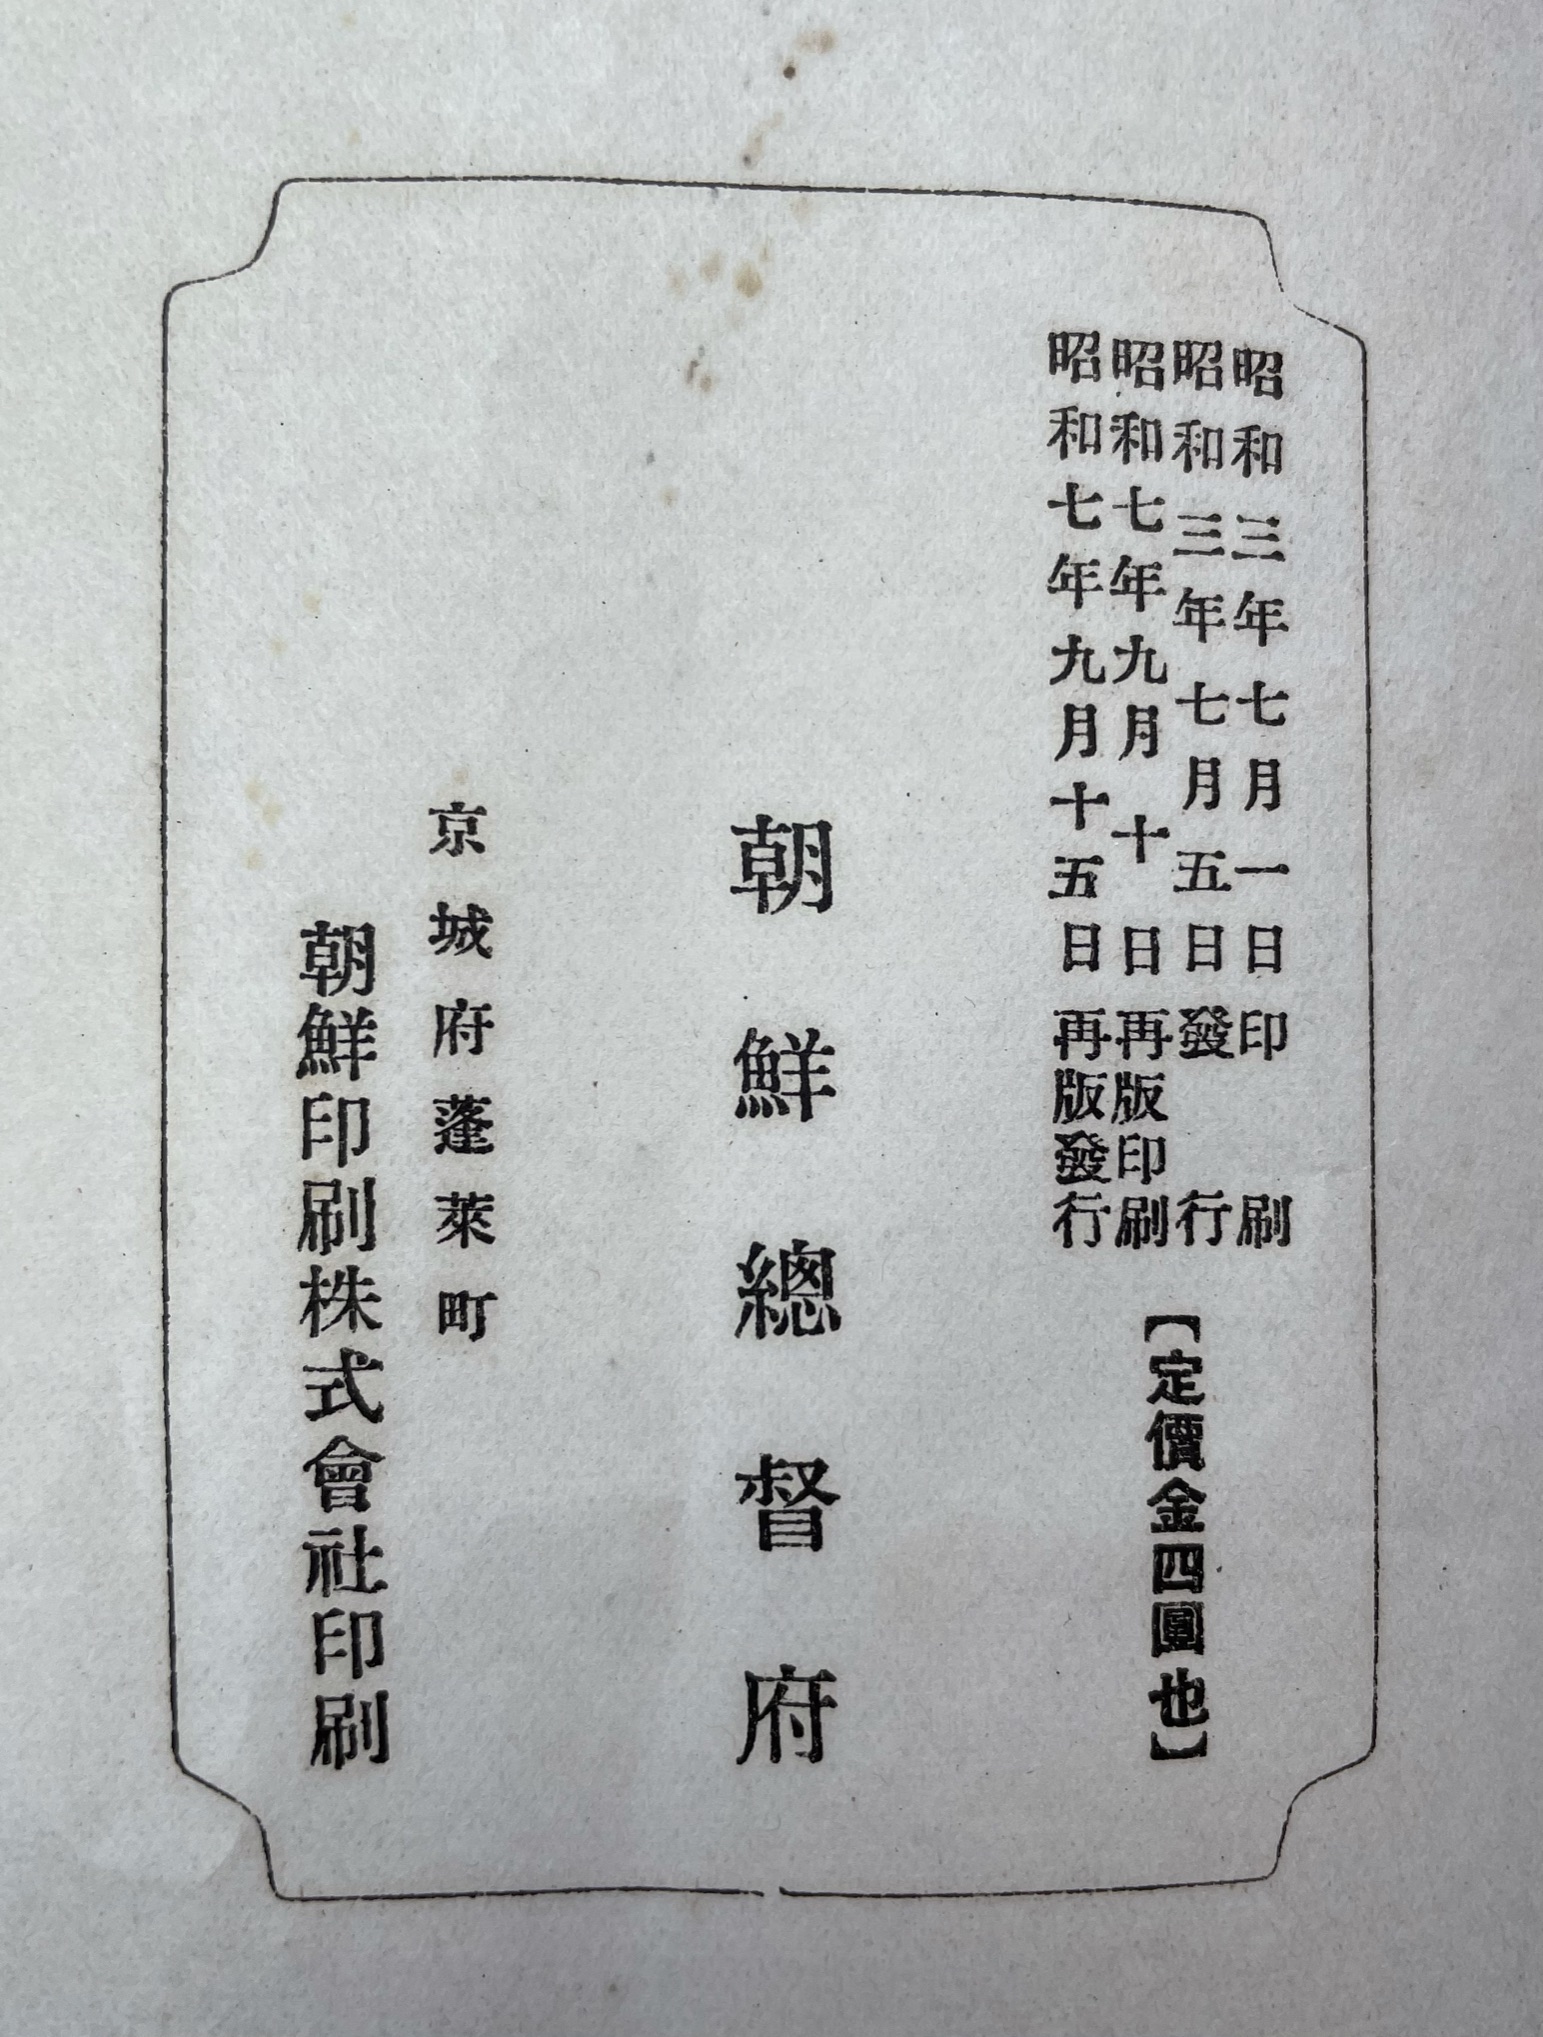 昭和三年七月一日印刷
昭和三年七月五日發行
昭和七年九月十日再版印刷
昭和七年九月十五日再版發行
【定價金四圓也】
朝鮮總督府
京城府蓬萊町
朝鮮印刷株式會社印刷